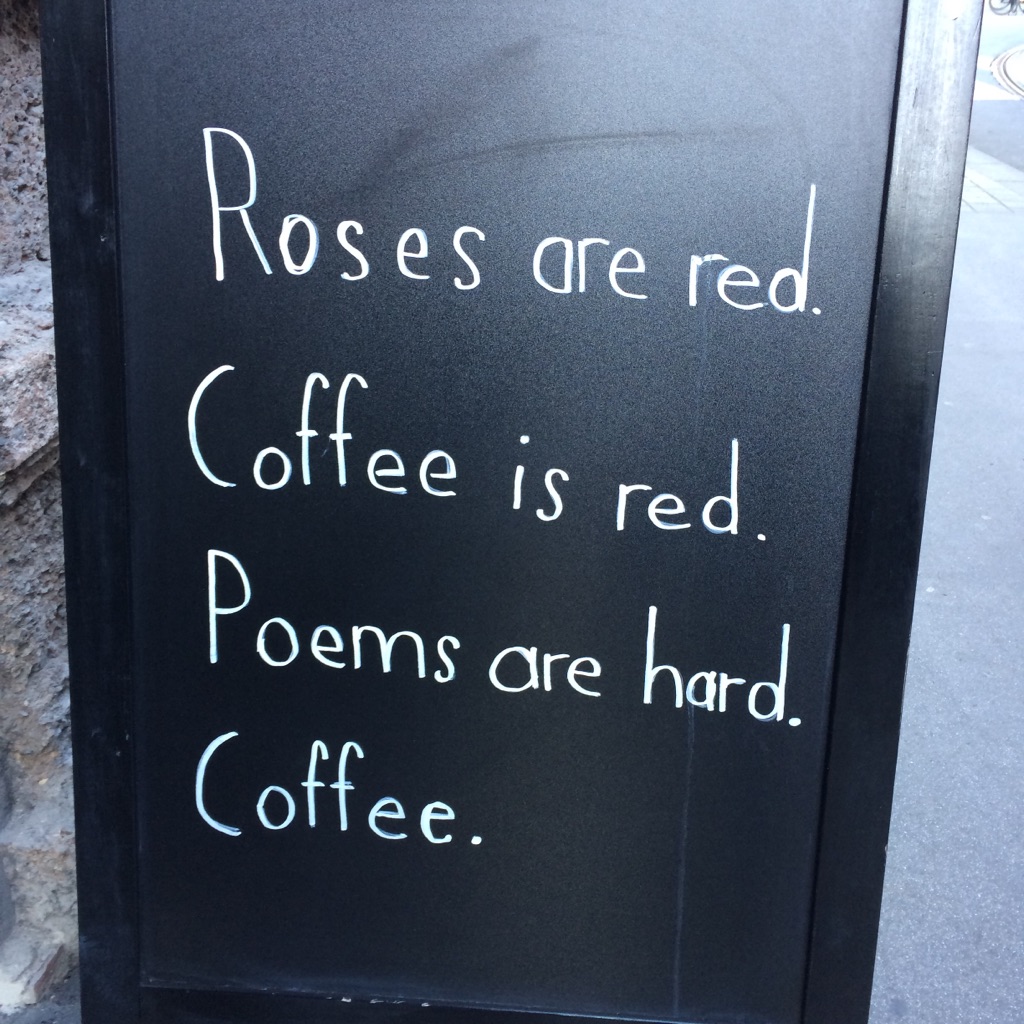 Roses are red.
Coffee is red.
Poems are hard.
Coffee.